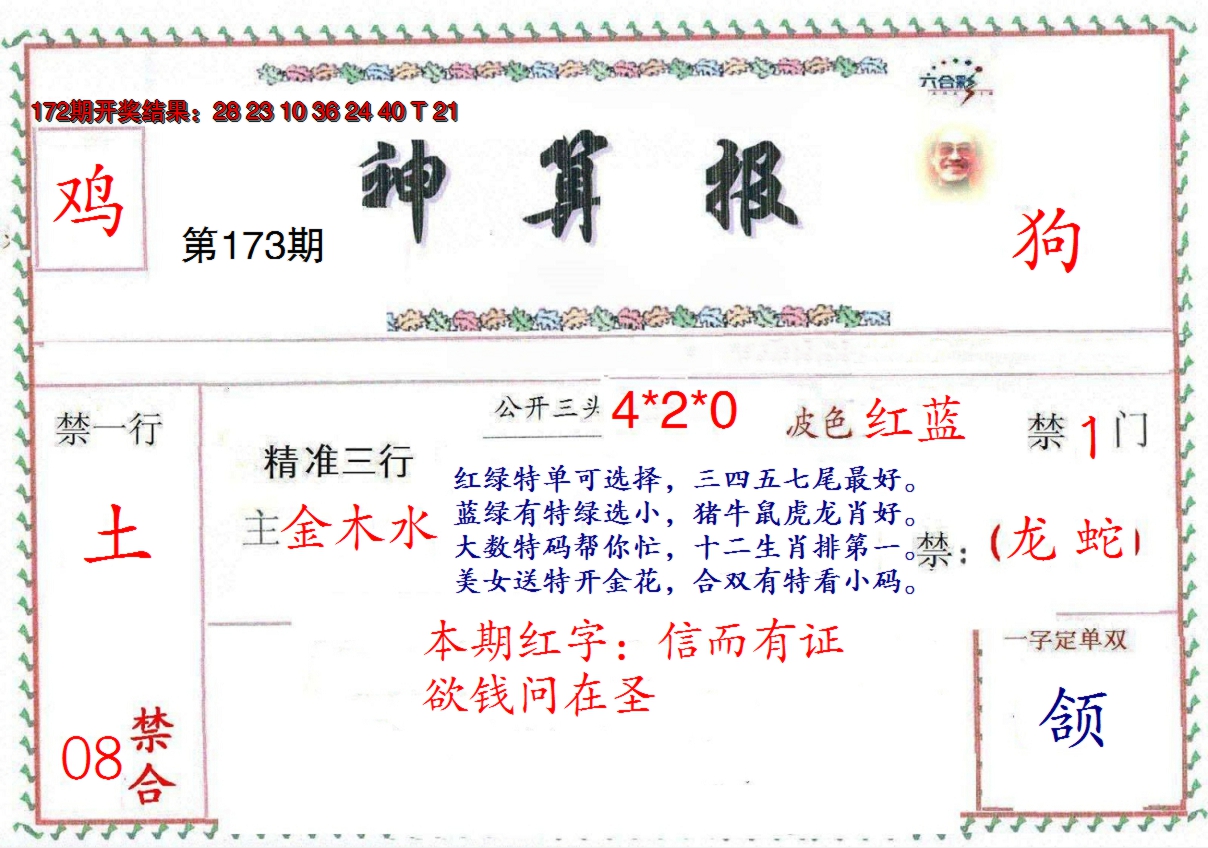 172期开奖结果：28 23 10 36 24 40 T 21
六合彩
鸡
第173期
神算报
狗
禁一行
土
08禁合
精准三行
主金木水
公开三头 4*2*0
波色红蓝
禁1门
红绿特单可选择，三四五七尾最好。
蓝绿有特绿选小，猪牛鼠虎龙肖好。
大数特码帮你忙，十二生肖排第一。
美女送特开金花，合双有特看小码。
禁：（龙 蛇）
本期红字：信而有证
欲钱问在圣
一字定单双
颔